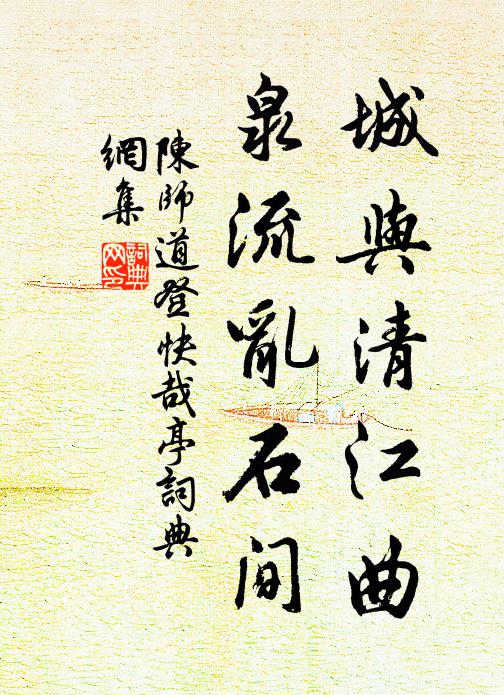 城與清江曲
泉流亂石間
陳師道登快哉亭詞典
網集
詞典
网印